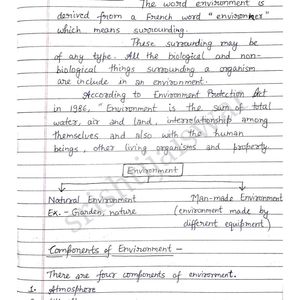 The word environment is
derived from a French word "environner"
which means surrounding.
These surrounding may be
of any type. All the biological and non-
biological things surrounding a organism
are include in an environment.
According to Environment Protection Act
in 1986, "Environment is the sum of total
water, air and land, interrelationship among
themselves and also with the human
beings, other living organisms and property
Environment
Natural Environment
Man-made Environment
Ex. - Garden, nature
(environment made by
different equipment)
Components of Environment -
There are four components of environment.
1. Atmosphere